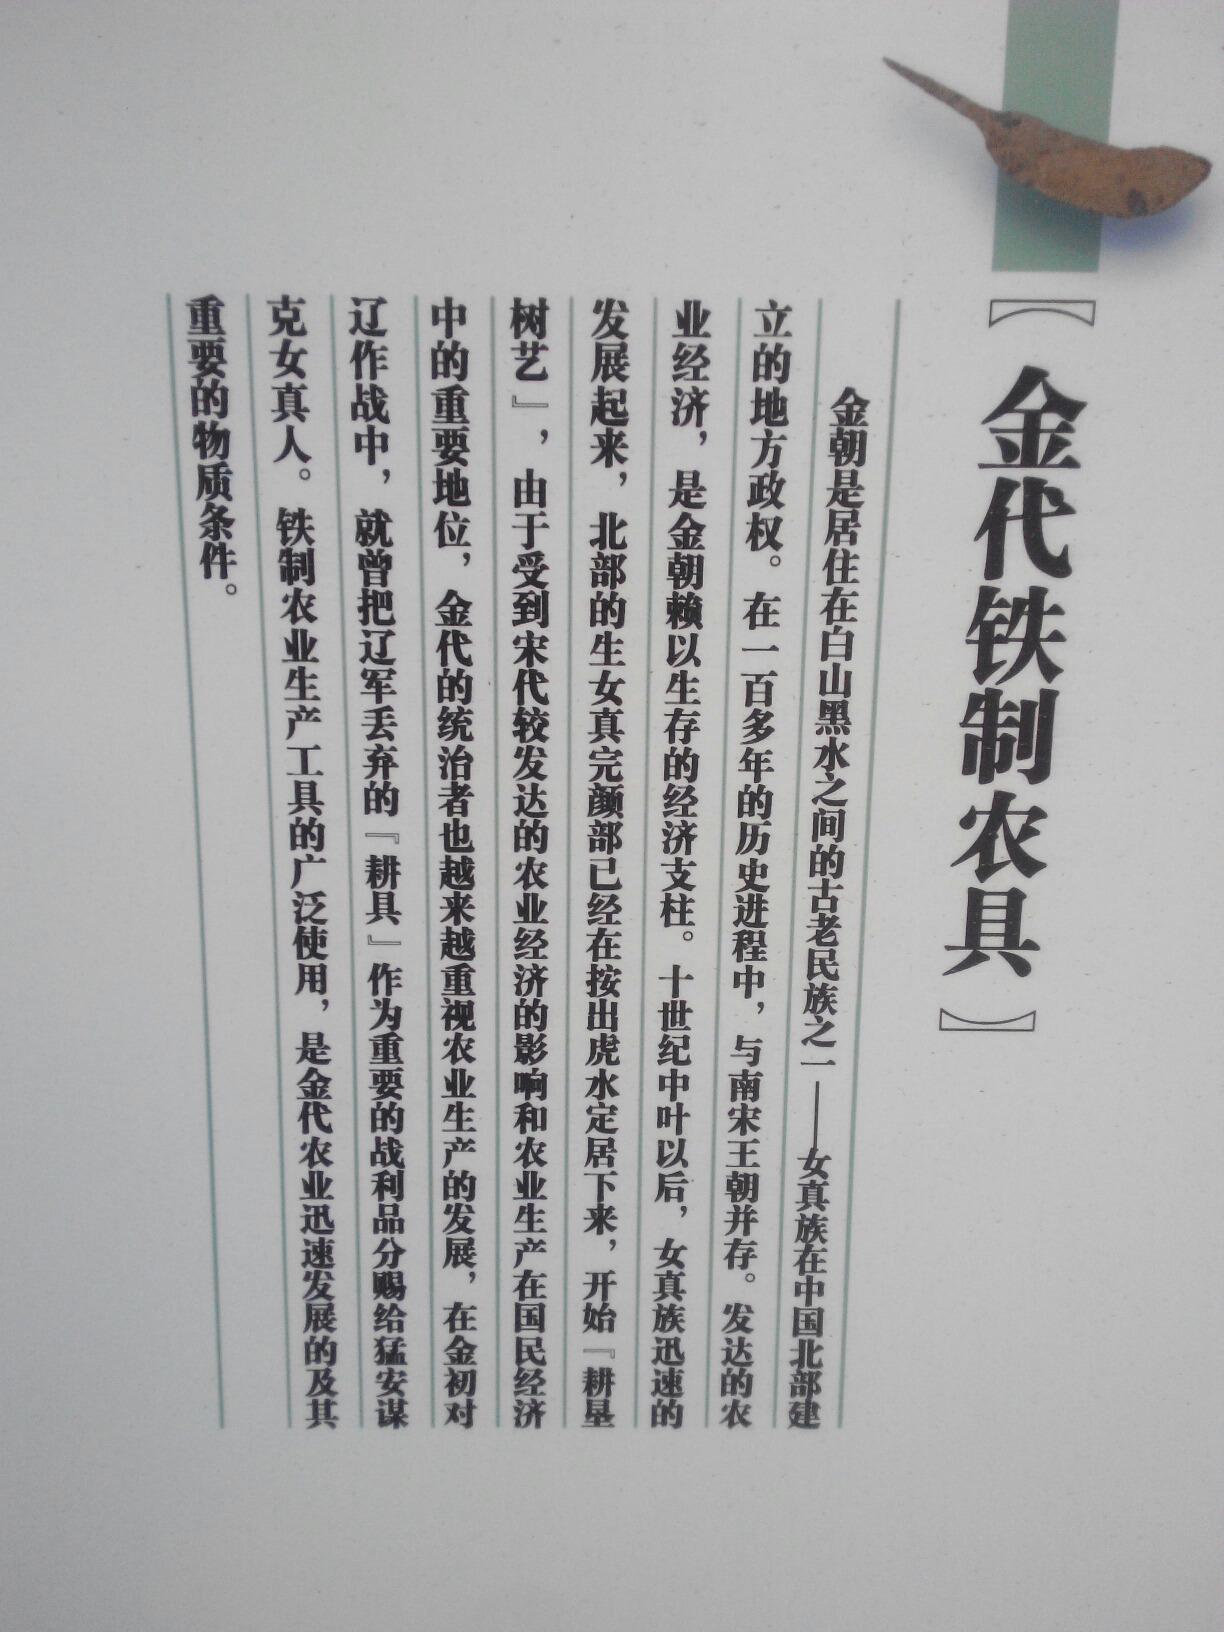 【金代铁制农具】
金朝是居住在白山黑水之间的古老民族之一——女真族在中国北部建
立的地方政权。在一百多年的历史进程中，与南宋王朝并存。发达的农
业经济，是金朝赖以生存的经济支柱。十世纪中叶以后，女真族迅速的
发展起来，北部的生女真完颜部已经在按出虎水定居下来，开始『耕垦
树艺』，由于受到宋代较发达的农业经济的影响和农业生产在国民经济
中的重要地位，金代的统治者也越来越重视农业生产的发展，在金初对
辽作战中，就曾把辽军丢弃的『耕具』作为重要的战利品分赐给猛安谋
克女真人。铁制农业生产工具的广泛使用，是金代农业迅速发展的及其
重要的物质条件。